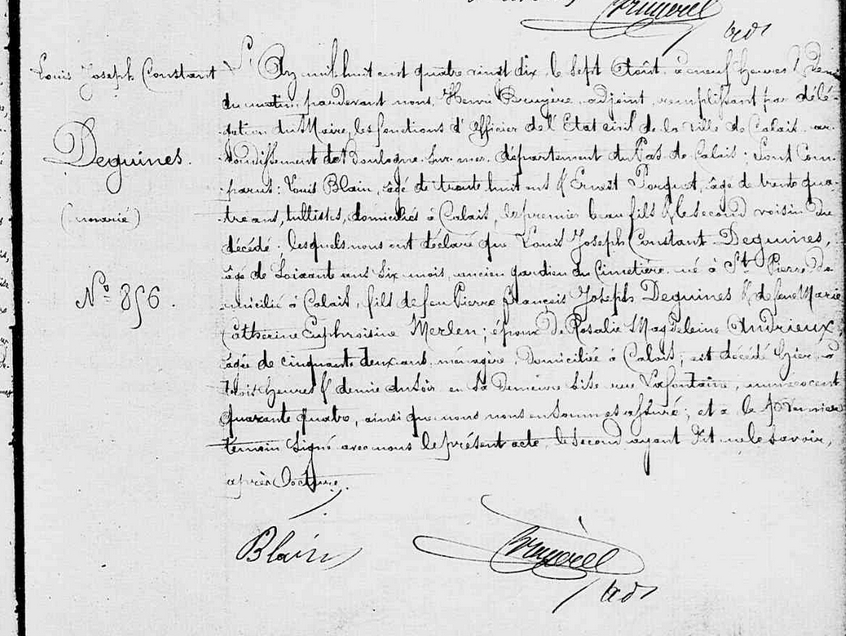 Bruyère
adt
Louis Joseph Constant
Deguines.
(marié)
N° 856.
L'An mil huit cent quatre vingt dix le sept Août, à neuf heures & demie
du matin, pardevant nous, Henri Bruyère, adjoint, remplissant par délé-
gation du Maire, les fonctions d'Officier de l'Etat civil de la ville de Calais, ar-
rondissement de Boulogne-sur-mer, département du Pas de Calais; Sont Com-
parus: Louis Blain, âgé de trente huit ans & Ernest Porquet, âgé de trente qua-
tre ans, tullistes, domiciliés à Calais, le premier beau fils & le second voisin du
décédé: lesquels nous ont déclaré que Louis Joseph Constant Deguines,
âgé de soixante ans six mois, ancien gardien du Cimetière, né à St Pierre do-
micilié à Calais, fils de feu Pierre François Joseph Deguines & de feue Marie
Catherine Euphroisine Merlen; époux de Rosalie Magdeleine Andrieux,
âgée de cinquante deux ans, ménagère, domiciliée à Calais, est décédé hier, à
trois heures & demie du soir en sa demeure sise rue Lafontaine, numéro cent
quarante quatre, ainsi que nous nous en sommes assuré; et a le premier
témoin signé avec nous le présent acte, le second ayant dit ne le savoir,
après lecture.
Blain
Bruyère
adt